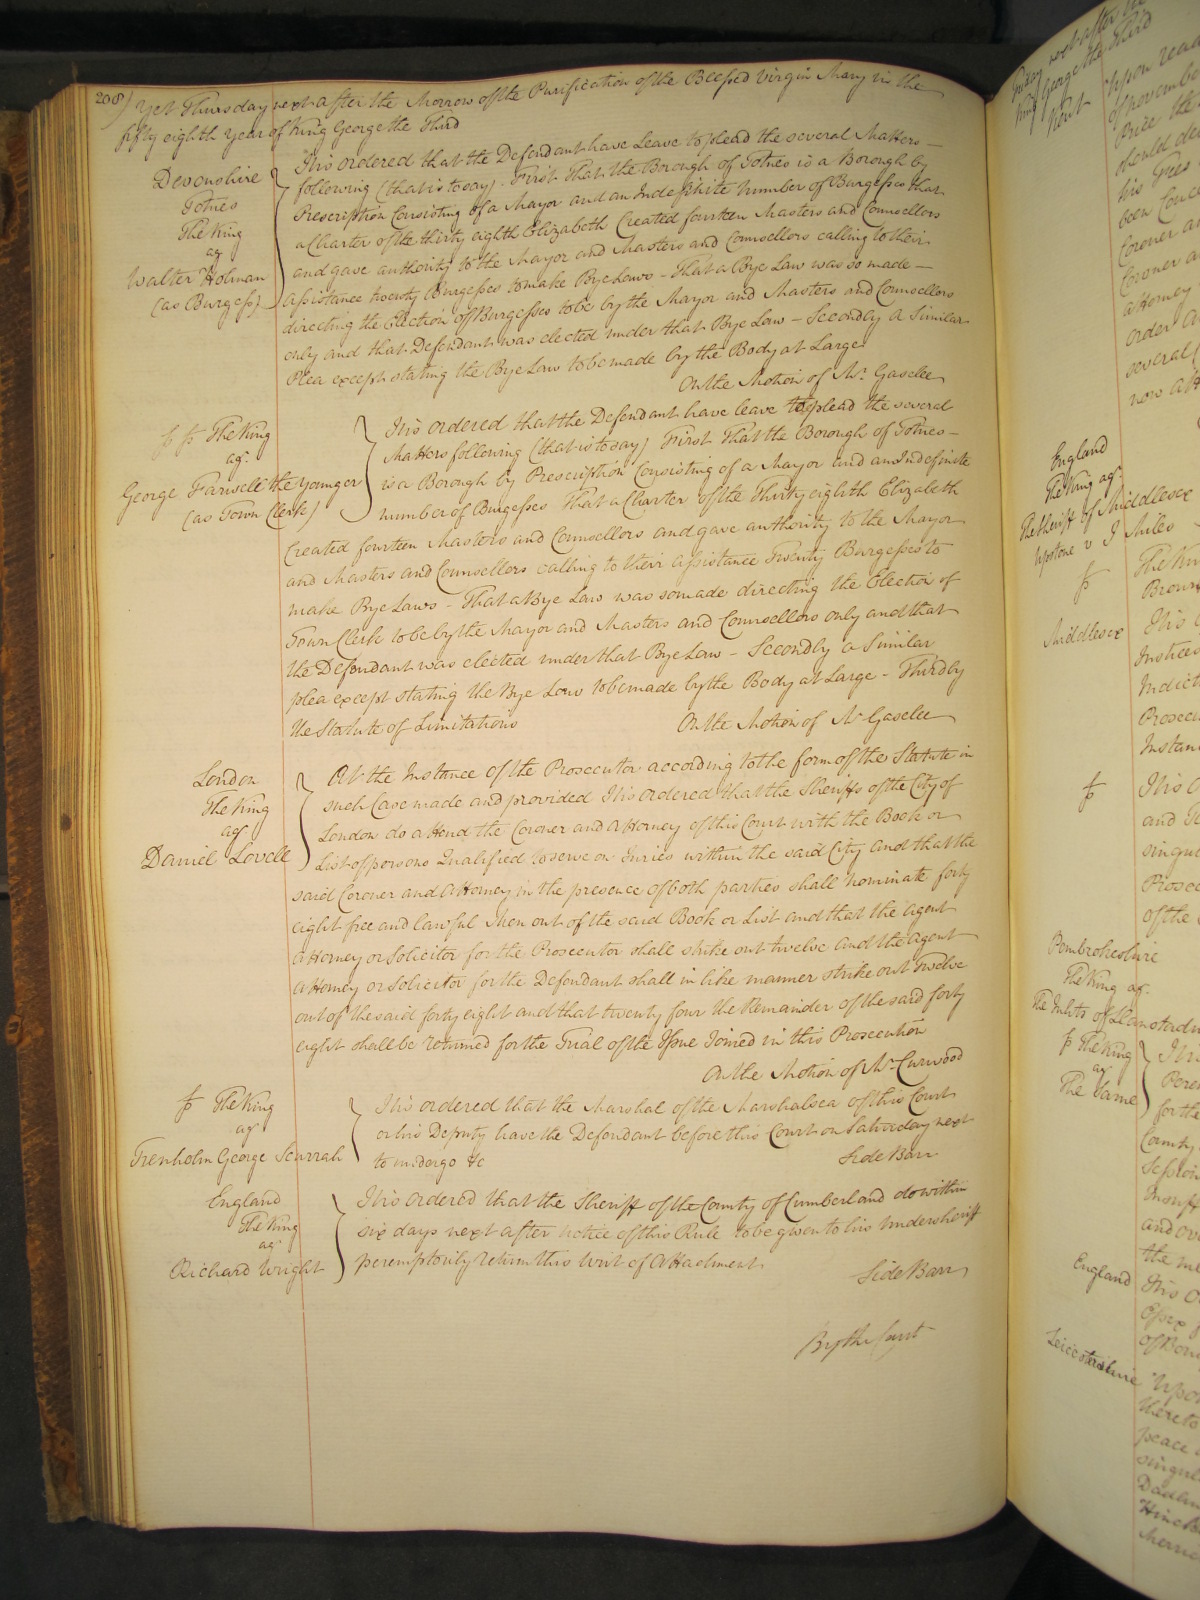 208) Yet Thursday next after the Morrow of the Purification of the Blessed Virgin Mary in the
fifty eighth Year of King George the Third
Devonshire
Totnes
The King
agt
Walter Holman
(as Burgess)
It is ordered that the Defendant have Leave to plead the several Matters
following (that is to say) - First That the Borough of Totnes is a Borough by
Prescription Consisting of a Mayor and an Indefinite Number of Burgesses that
a Charter of the thirty eighth Elizabeth Created fourteen Masters and Counsellors
and gave authority to the Mayor and Masters and Counsellors calling to their
assistance twenty Burgesses to make Bye Laws - That a Bye Law was so made -
directing the Election of Burgesses to be by the Mayor and Masters and Counsellors
only and that Defendant was elected under that Bye Law - Secondly a Similar
Plea except stating the Bye Law to be made by the Body at Large
On the Motion of Mr. Gaselee
The King
agt.
George Farwell the younger
(as Town Clerk)
It is ordered that the Defendant have leave to plead the several
Matters following (that is to say) First That the Borough of Totnes -
is a Borough by Prescription Consisting of a Mayor and an Indefinite
number of Burgesses That a Charter of the Thirty eighth Elizabeth
Created fourteen Masters and Counsellors and gave authority to the Mayor
and Masters and Counsellors calling to their assistance Twenty Burgesses to
make Bye Laws - That a Bye Law was so made directing the Election of
Town Clerk to be by the Mayor and Masters and Counsellors only and that
the Defendant was elected under that Bye Law - Secondly a Similar
plea except stating the Bye Law to be made by the Body at Large - Thirdly
the Statute of Limitations On the Motion of Mr Gaselee
London
The King
agt
Daniel Lovell
At the Instance of the Prosecutor according to the form of the Statute in
such Case made and provided It is Ordered that the Sheriffs of the City of
London do attend the Coroner and Attorney of this Court with the Book or
List of persons Qualified to serve on Juries within the said City and that the
said Coroner and Attorney in the presence of both parties shall nominate forty
eight free and lawful Men out of the said Book or List and that the Agent
Attorney or Solicitor for the Prosecutor shall strike out twelve and the Agent
Attorney or Solicitor for the Defendant shall in like manner strike out Twelve
out of the said forty eight and that twenty four the Remainder of the said forty
eight shall be returned for the Trial of the Issue Joined in this Prosecution
On the Motion of Mr. Curwood
The King
agt
Trenholm George Scurrah
It is ordered that the Marshal of the Marshalsea of this Court
or his Deputy have the Defendant before this Court on Saturday next
to undergo &c Side Barr
England
The King
agt
Richard Wright
It is Ordered that the Sheriff of the County of Cumberland do within
six days next after notice of this Rule to be given to his Undersheriff
peremptorily return this Writ of Attachment
Side Barr
By the Court
England
The King agt
The Sheriff of Middlesex
Middlesex
Pembrokeshire
The King agt.
The King
agt
The Same
England
Leicestershire